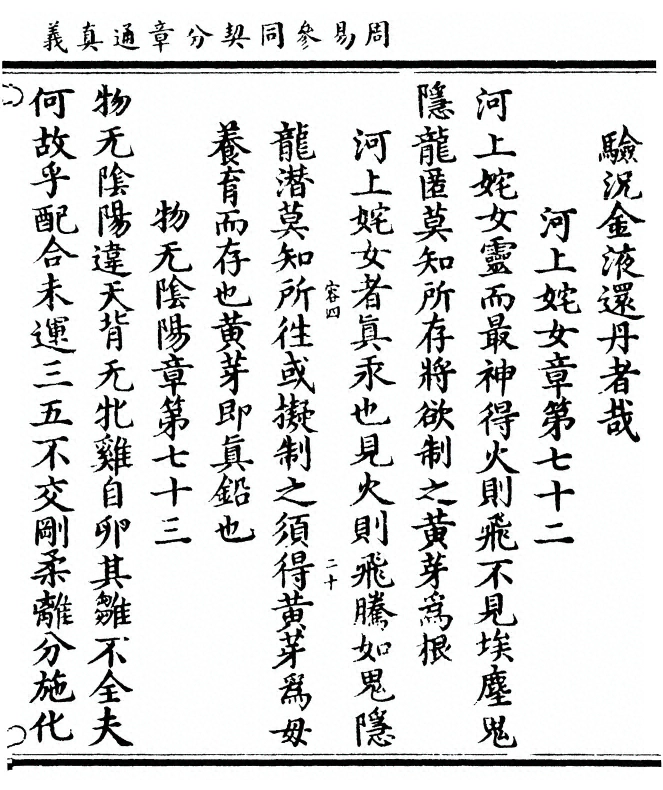 周易參同契分章通真義
驗況金液還丹者哉
河上姹女章第七十二
河上姹女靈而最神得火則飛不見埃塵鬼
隱龍匿莫知所存將欲制之黃芽爲根
河上姹女者眞汞也見火則飛騰如鬼隱
容四
二十
龍潛莫知所徃或擬制之須得黃芽爲母
養育而存也黃芽即眞鉛也
物无陰陽章第七十三
物无陰陽違天背无牝雞自卵其雛不全夫
何故乎配合未運三五不交剛柔離分施化